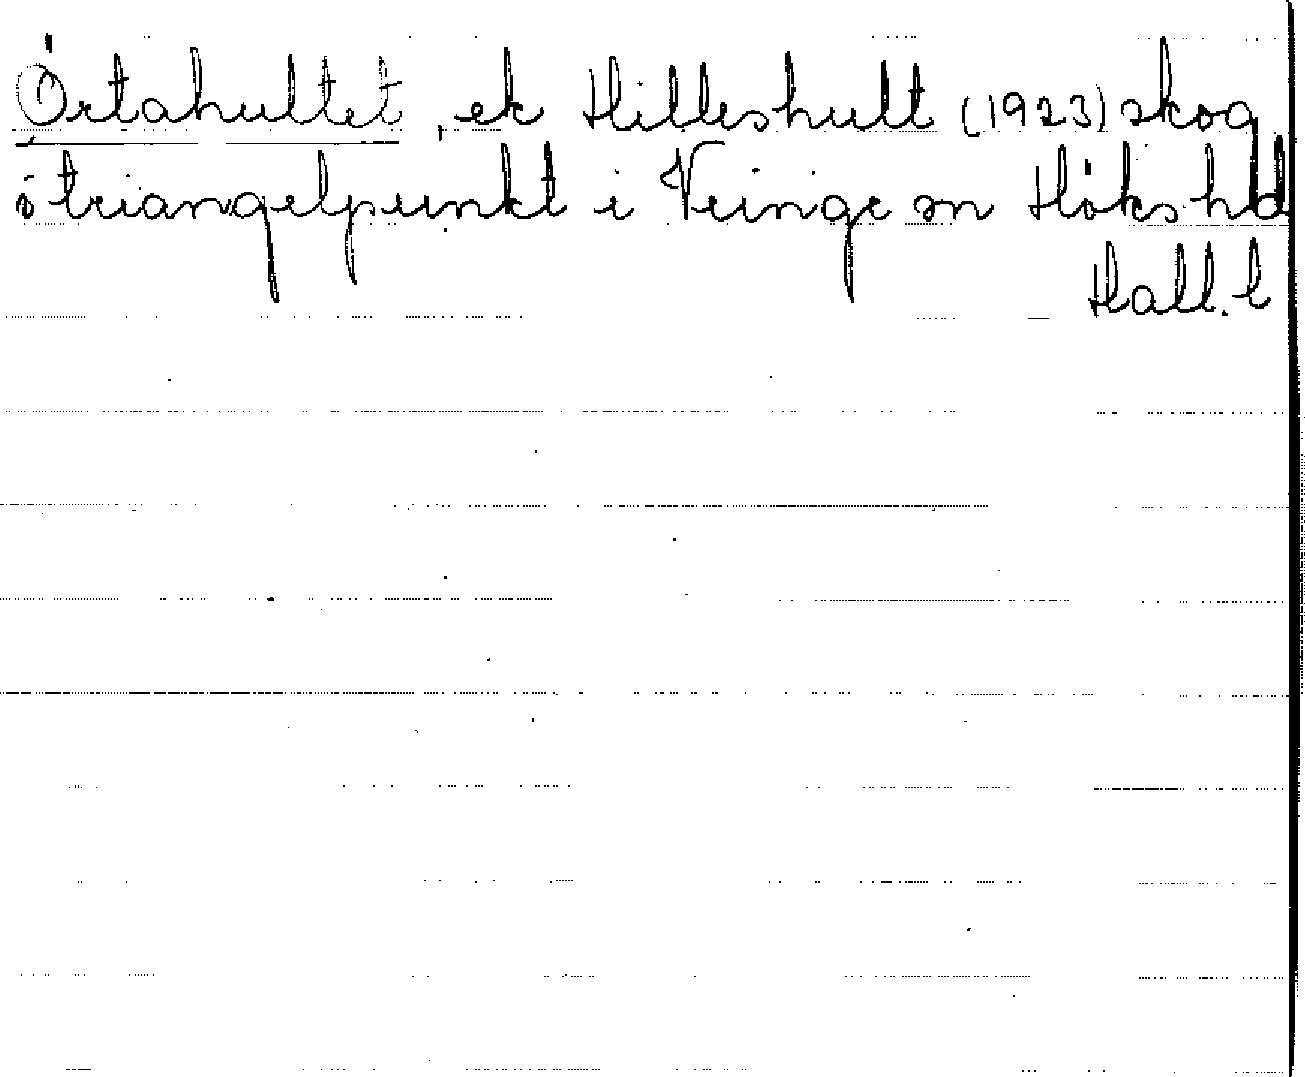 Örtahultet, ek Hilleshult (1923) skog
ö triangelpunkt i Veinge sn Höks hd
Hall. l